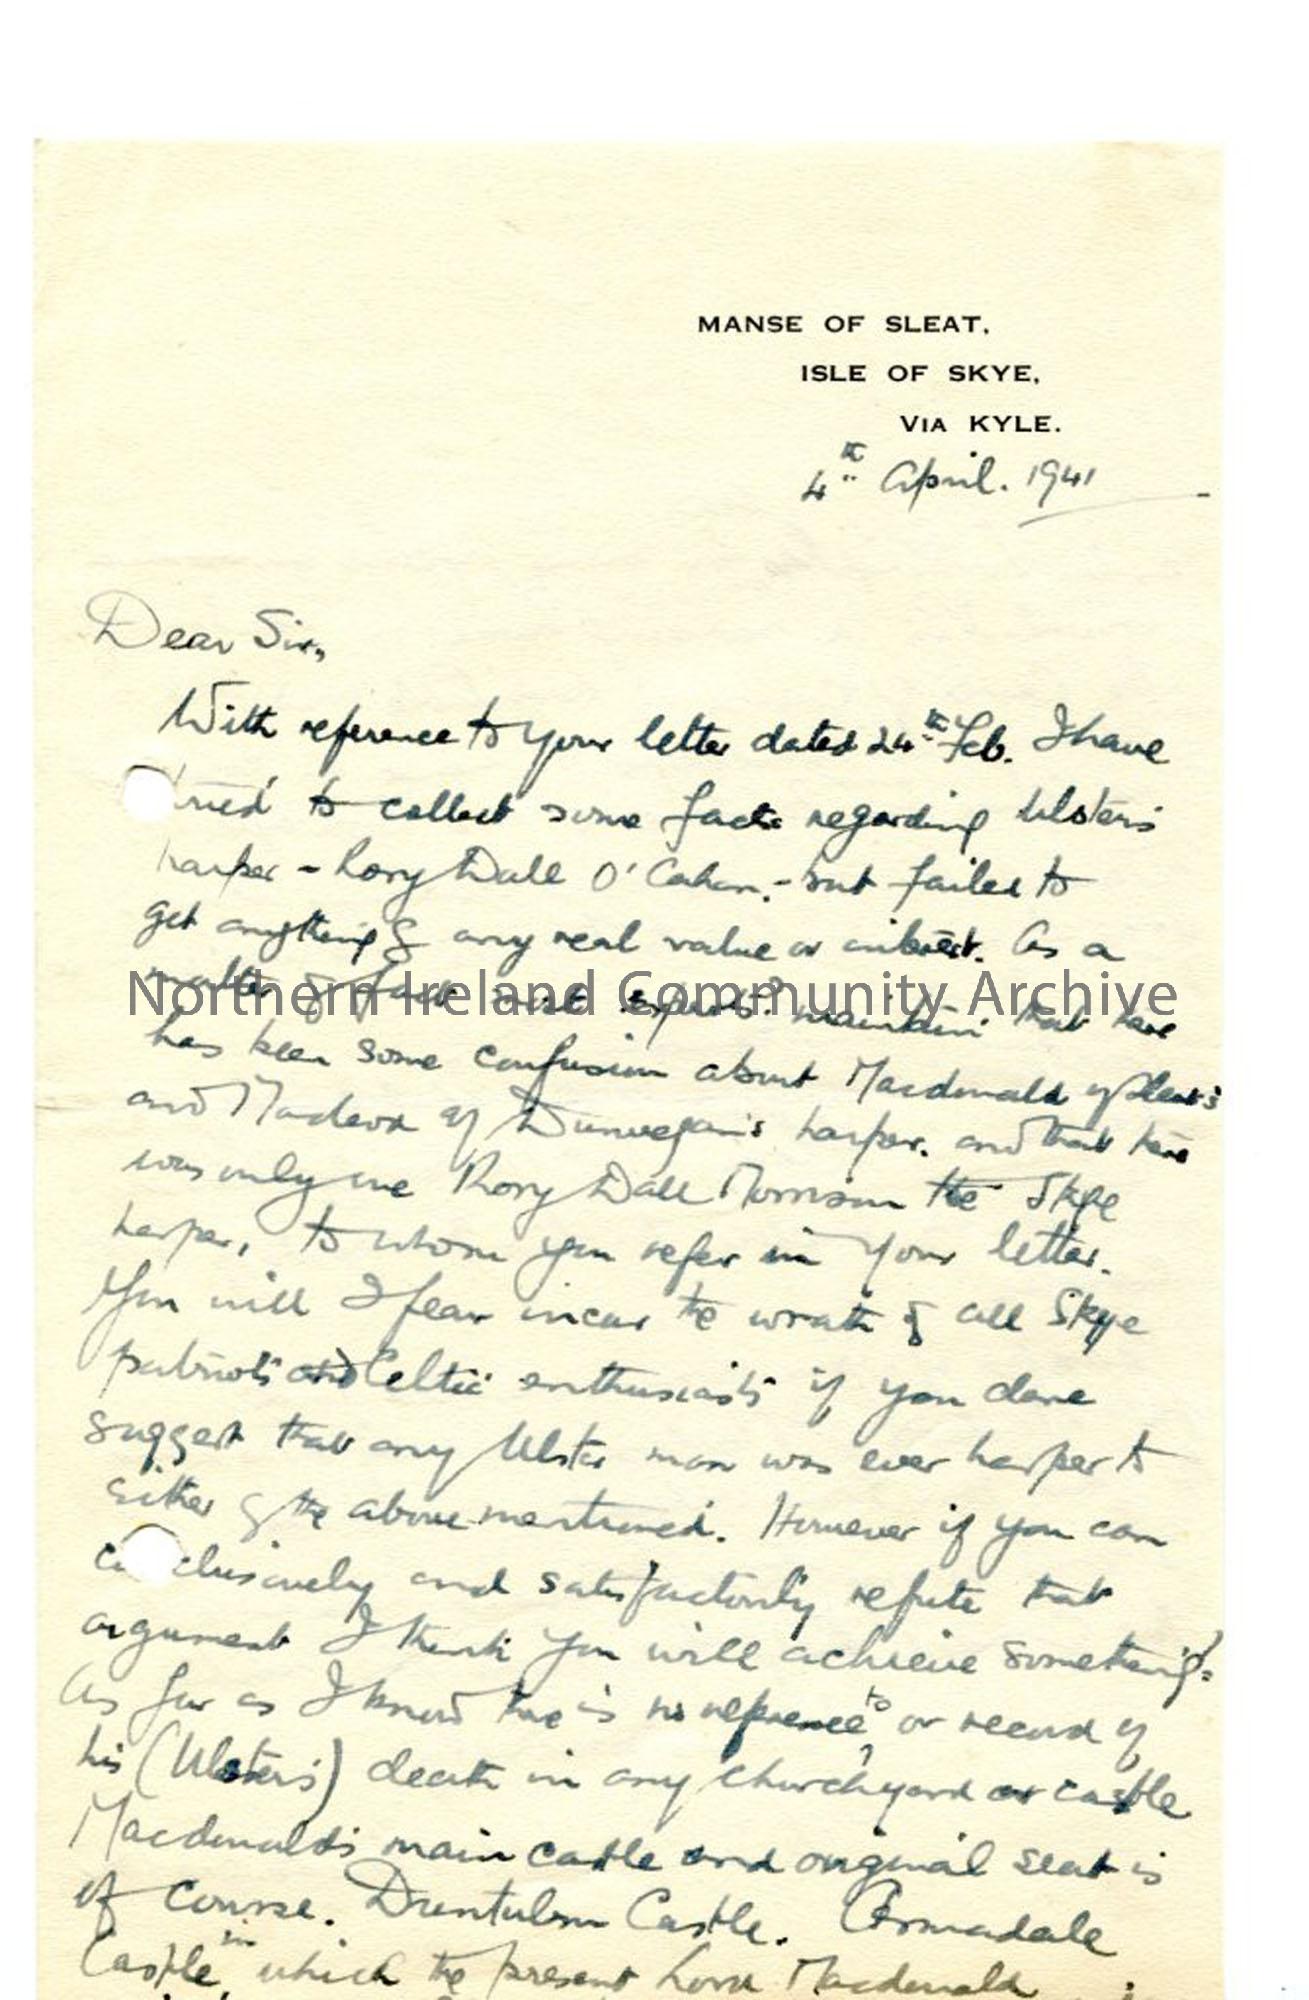 MANSE OF SLEAT,
ISLE OF SKYE,
VIA KYLE.
4th April. 1941
Dear Sir,
With reference to your letter dated 24th Feb. I have
tried to collect some facts regarding Ulster's
harper - Rory Dall O'Cahan. - but failed to
get anything of any real value or interest. As a
matter of fact most experts maintain that there
has been some confusion about Macdonald of Sleat's
and Macleod of Dunvegan's harper. and that there
was only one Rory Dall Morrison the Skye
harper, to whom you refer in your letter.
You will I fear incur the wrath of all Skye
patriots and Celtic enthusiasts if you dare
suggest that any Ulster man was ever harper to
either of the above mentioned. However if you can
conclusively and satisfactorily refute that
argument I think you will achieve something.
As far as I know there is no reference to or record of
his (Ulster's) death in any churchyard or castle
Macdonald's main castle and original seat is
of course. Duntulm Castle. Armadale
Castle in which the present Lord Macdonald
Northern Ireland Community Archive